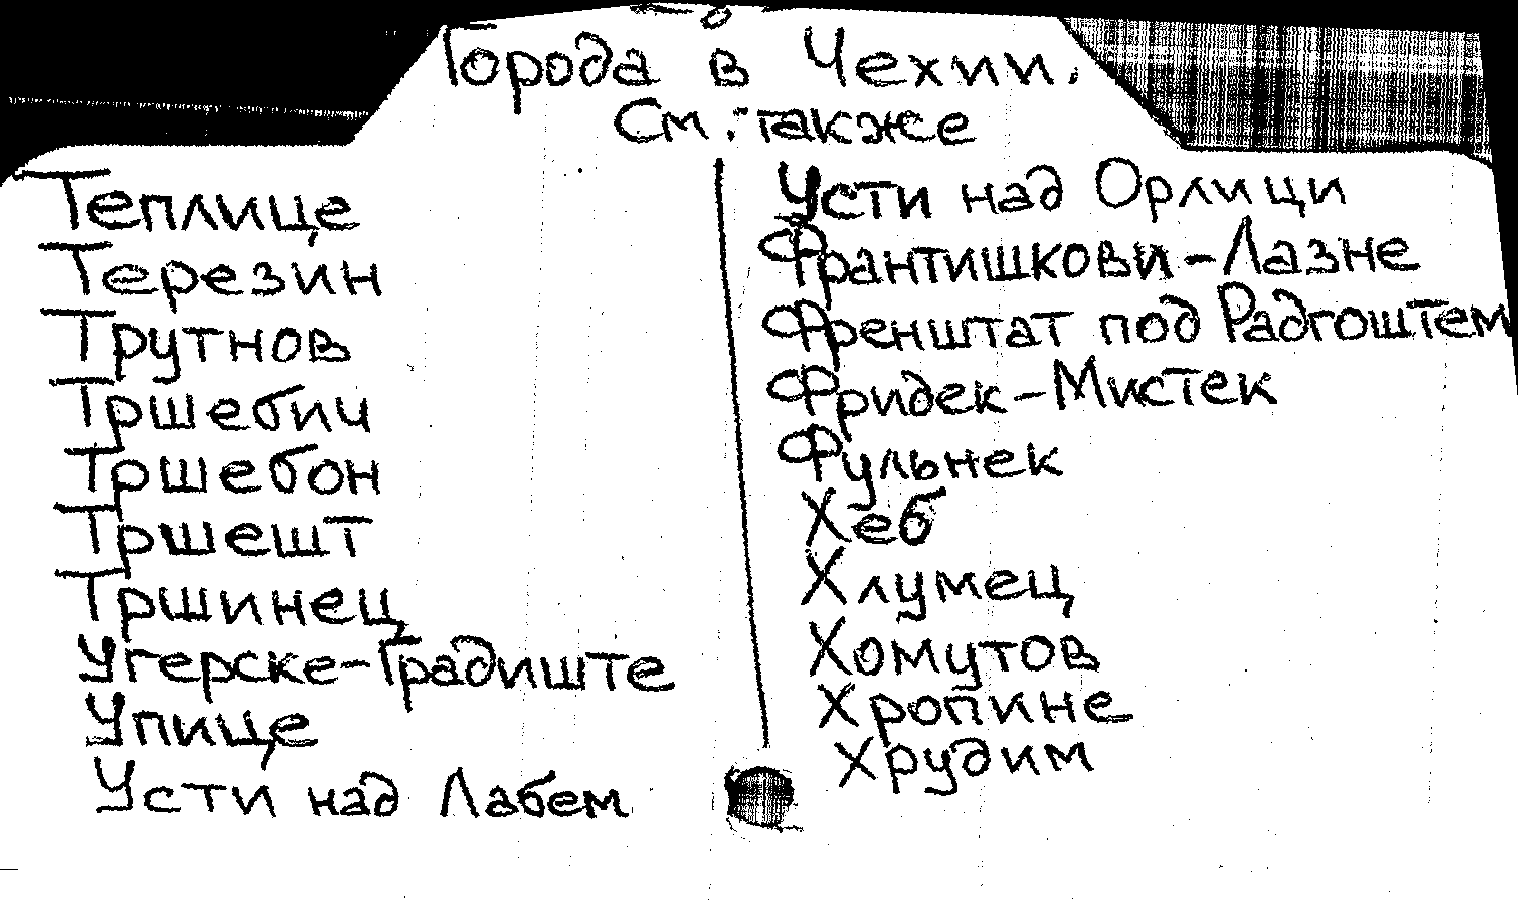 Города в Чехии.
См. также
Теплице
Терезин
Трутнов
Тршебич
Тршебон
Тршешт
Тршинец
Угерске-Градиште
Упице
Усти над Лабем
Усти над Орлици
Франтишкови-Лазне
Френштат под Радгоштем
Фридек-Мистек
Фульнек
Хеб
Хлумец
Хомутов
Хропине
Хрудим